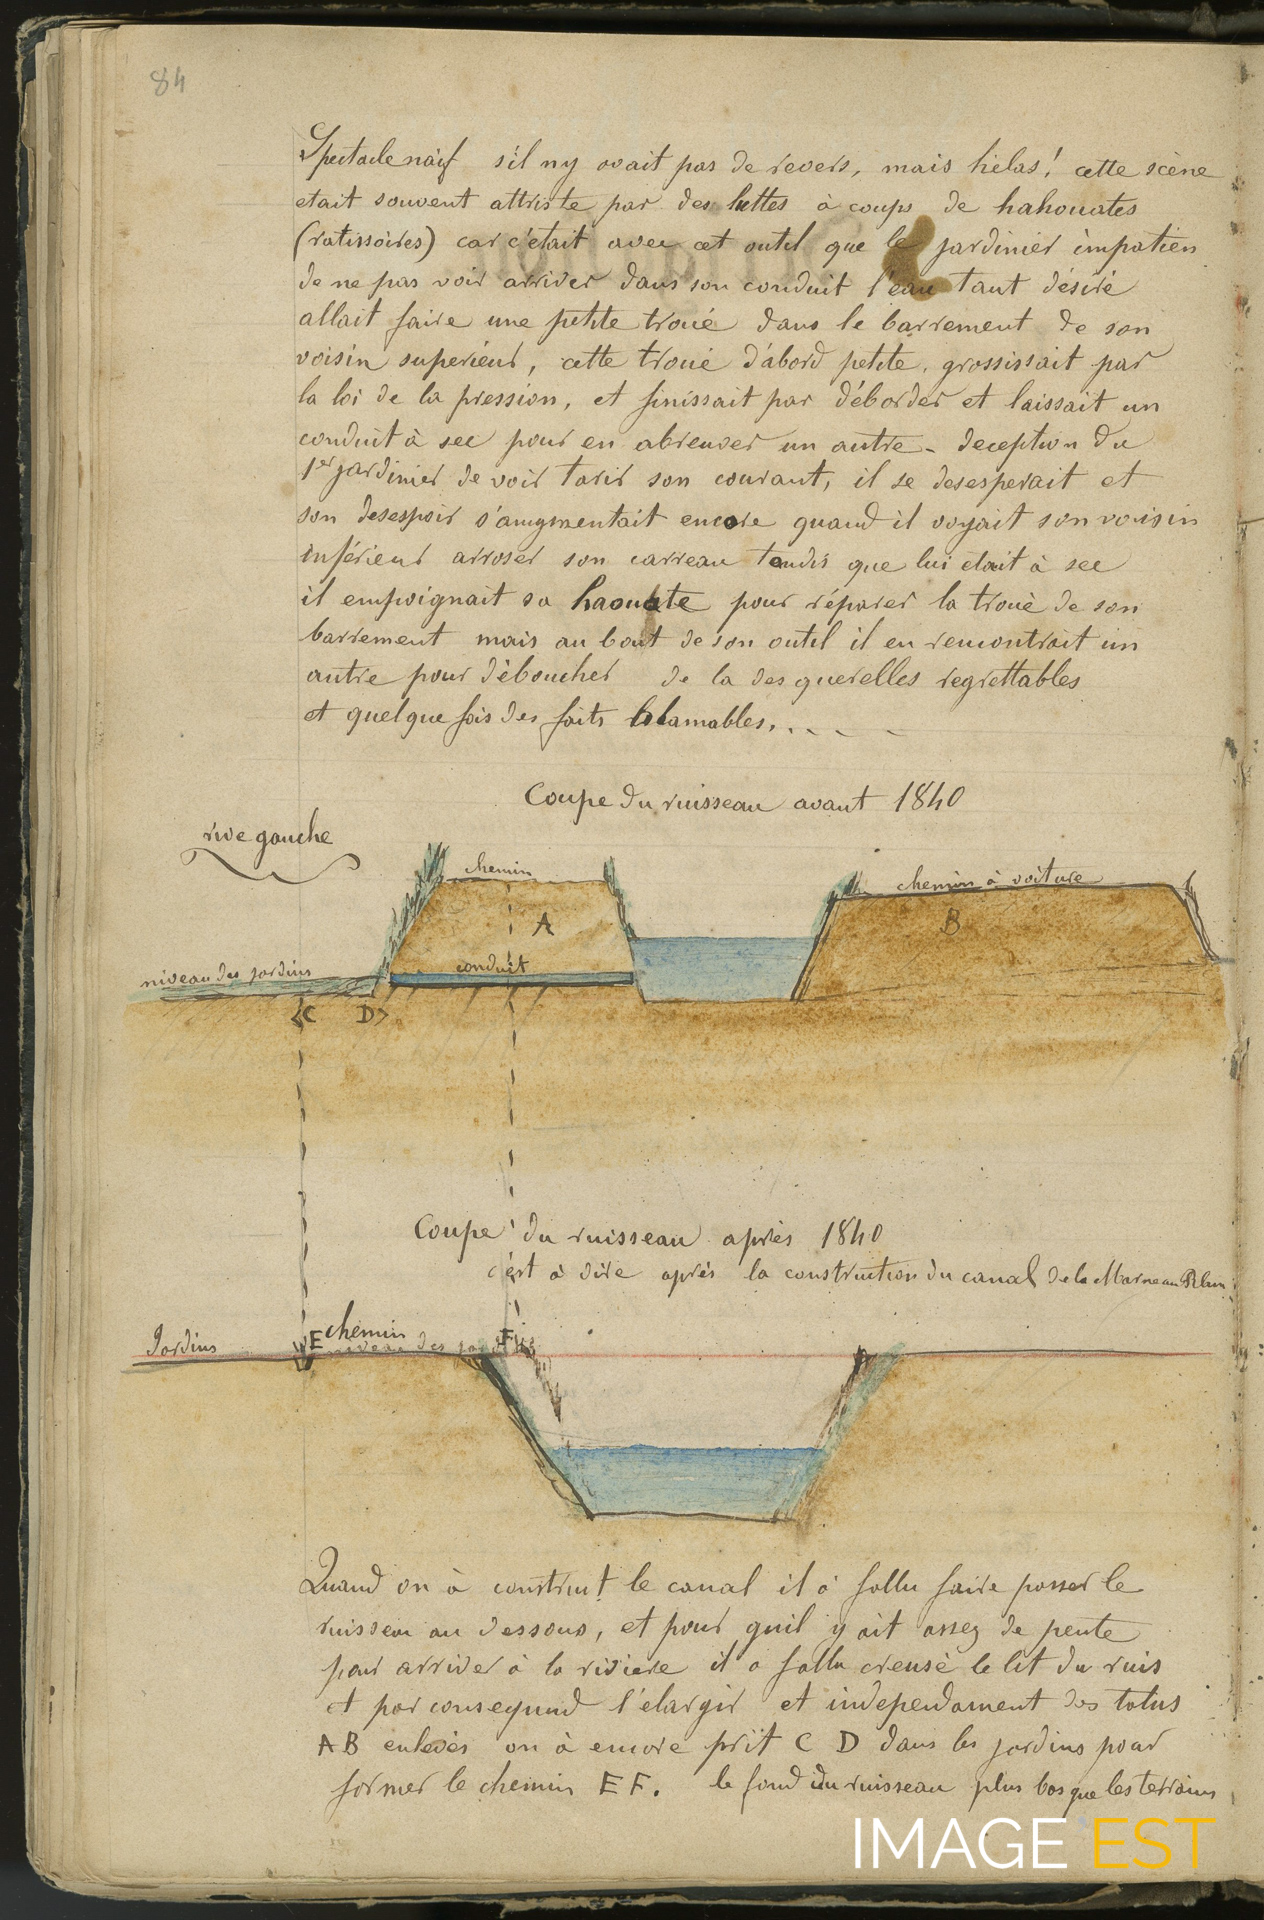 84
Spectacle naïf s'il ny avait pas de revers, mais hélas! cette scène
etait souvent attriste par des luttes à coups de hahouates
(ratissoires) car c'était avec cet outil que le jardinier impatien
de ne pas voir arriver dans son conduit l'eau tant désiré
allait faire une petite troué dans le barrement de son
voisin superieur, cette troué d'abord petite, grossissait par
la loi de la pression, et finissait par déborder et laissait un
conduit à sec pour en abreuver un autre - deception du
1er jardinier de voir tarir son courant, il se desesperait et
son desespoir s'augmentait encore quand il voyait son voisin
inférieur arroser son carreau tandis que lui était à sec
il empoignait sa haouate pour réparer la troué de son
barrement mais au bout de son outil il en remontrait un
autre pour déboucher de la des querelles regrettables
et quelque fois des faits blamables. . . . .
Coupe du ruisseau avant 1840
rive gauche
chemin
chemin à voiture
A
B
conduit
niveau des jardins
C D
Coupe du ruisseau après 1840
c'est à dire après la construction du canal de la Marne au Rhin
Jardins
E chemin F
niveau des jardins
Quand on à construit le canal il à fallu faire passer le
ruisseau au dessous, et pour quil y ait assez de pente
pour arriver à la riviere il a fallu creusé le lit du ruis
et par consequend l'elargir et independament des talus
AB enlevés on à encore prit C D dans les jardins pour
former le chemin E F. le fond du ruisseau plus bas que les terrains
IMAGE EST